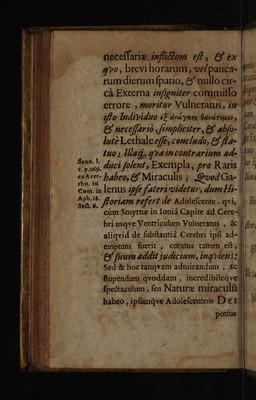 necessariæ inflictum est, & ex
quo, brevi horarum, vel pauca-
rum dierum spatio, & nullo cir-
cà Externa insigniter commisso
errore, moritur Vulneratus, in
isto Individuo ἐξ ἀνάγκης θανάσιμον,
& necessariò, simpliciter, & abso-
lutè Lethale esse, concludo, & sta-
tuo; Illaq;, qvæ in contrarium ad-
duci solent, Exempla, pro Raris
habeo, & Miraculis; Qvod Ga-
lenus ipse fateri videtur, dum Hi-
storiam refert de Adolescente, qvi,
cùm Smyrnæ in Ioniâ Capite ad Cere-
bri usqve Ventriculum Vulneratus, &
aliqvid de substantiâ Cerebri ipsi ad-
emptum fuerit, curatus tamen est,
& suum addit judicium, inqviens:
Sed & hoc tanqvam admirandum, ac
stupendum qvoddam, incredibileqve
spectaculum, seu Naturæ miraculũ
habeo, ipsumqve Adolescentem DEI
potius
Senn. l.
c. p. 369.
ex Aver-
rho. in
Com. in
Aph. 18.
Sect. 6.